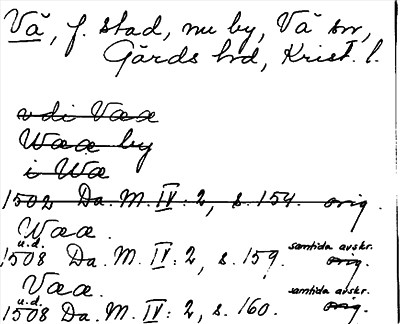 Vä, f. stad, nu by, Vä sn,
Gärds hd, Krist. l.
vdi Væa
Wææ by
i Wæ
1502 Da. M. IV: 2, s. 154. orig.
Waa.
u.d.
1508 Da. M. IV: 2, s. 159. samtida avskr. orig.
Vaa.
u.d.
1508 Da. M. IV: 2, s. 160. samtida avskr. orig.